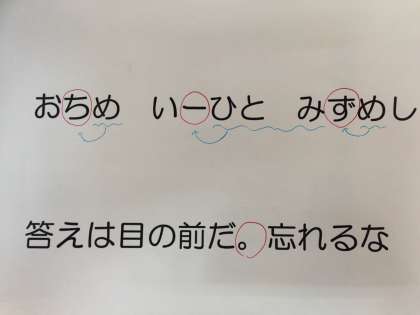 おちめ　いーひと　みずめし
答えは目の前だ。忘れるな